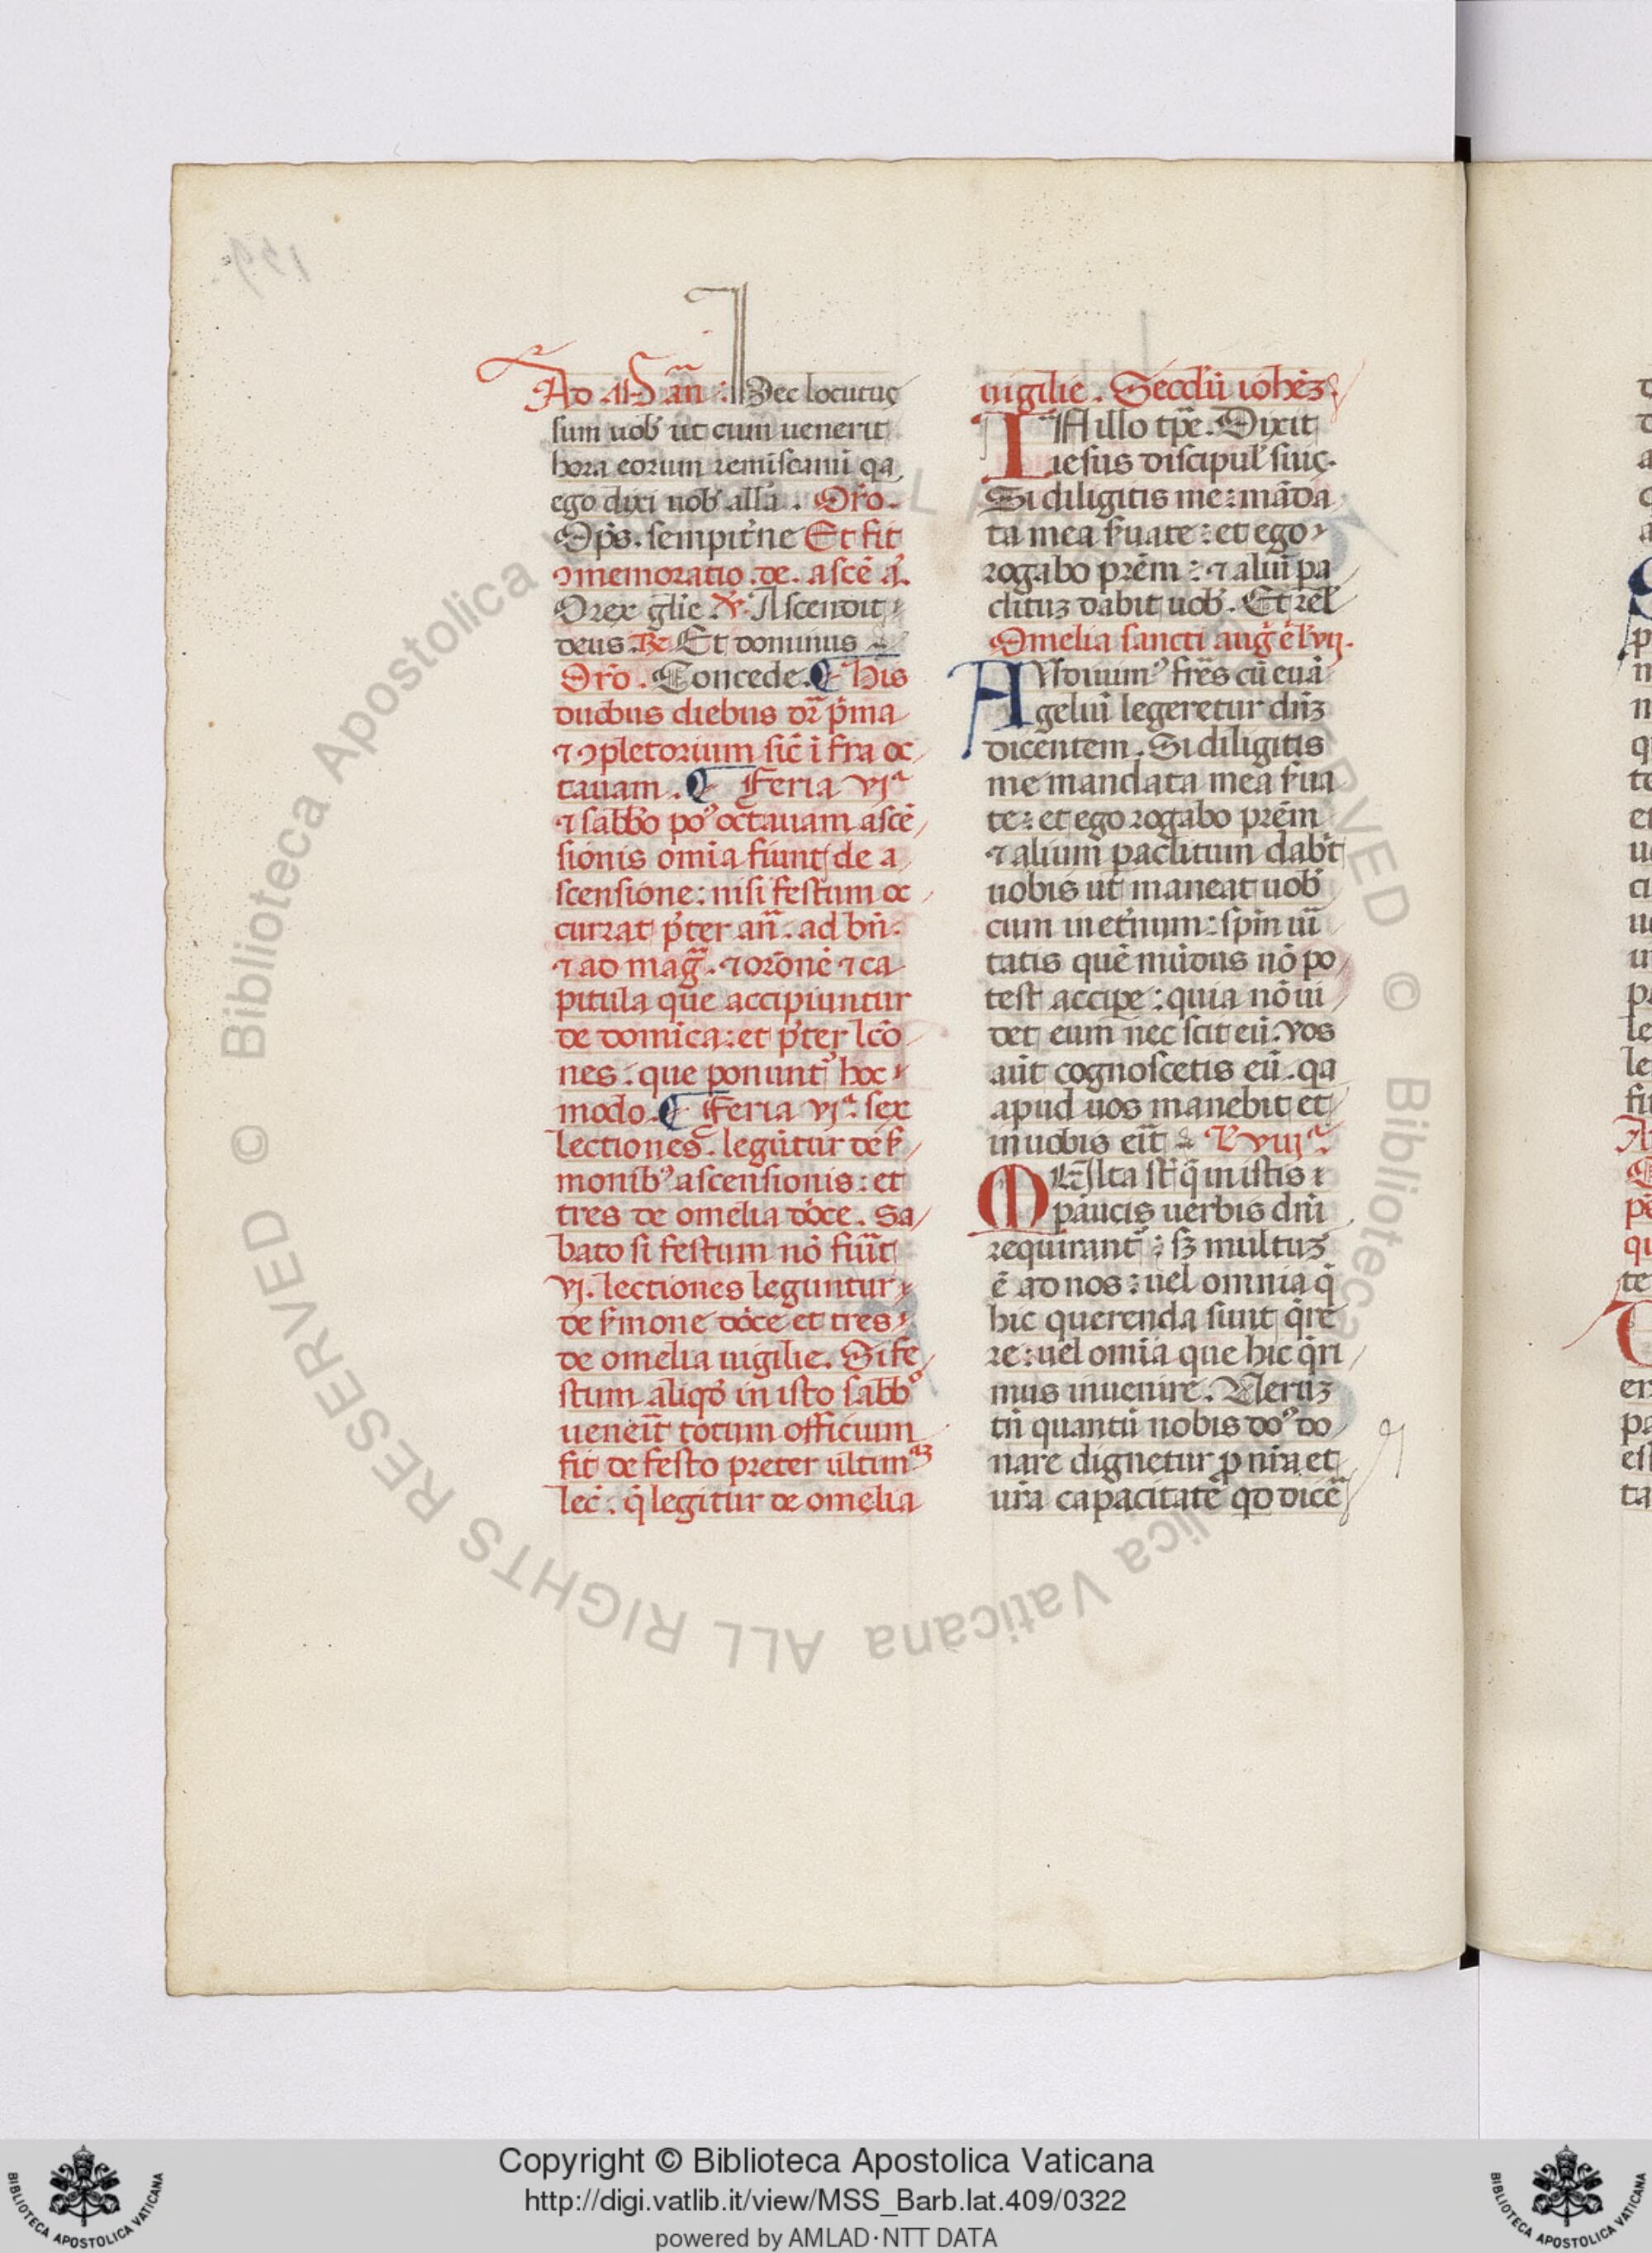 Ad .M. an̄ : Hec locutus
sum uob̾ ut cum uenerit
hora eorum remiscamī qa
ego dixi uob̾ alla̅ . Or̅o.
Op̅s. sempit̾ne Et fit
ꝯmemoratio. de. ascē a̅.
O rex gl̅ie. ℣. Ascendit
deus. ℟ Et dominus
Or̅o. Concede. ¶ His
duobus diebus dr̅ p̾ma
⁊ ꝯpletorium sic̅ ī fra oc
tauam. ¶ Feria vjᵃ
⁊ sabb̅o po᷒ octauam ascē
sionis om̅ia fiunt de a
scensione: nisi festum oc
currat p̾ter an̄. ad bn̄.
⁊ ad mag̅. ⁊ or̅onē ⁊ ca
pitula que accipiuntur
de domi̅ca: et p̾ter lc̅o
nes. que ponunt᷑ hoc
modo. ¶ Feria vjᵃ. sex
lectiones. legūtur de s̾
monib᷒ ascensionis: et
tres de omelia do̅ce. Sa
bato si festum nō fu̅it
vj. lectiones leguntur
de s̾mone do̅ce et tres
de omelia uigilie. Si fe
stum aliqō in isto sabb̅o
uenei̅t totum officium
fit de festo preter ultimᵃꝫ
lec̅. q̅ legitur de omelia
uigilie. Secdū ioheꝫ
IN illo tp̅e. Dixit
iesus discipul̾ suis.
Si diligitis me: māda
ta mea s̾uate: et ego
rogabo prēm: ⁊ aliū pa
clituꝫ dabit uob̾. Et rel̾
Omelia sancti aug̅ el̾ vij.
AUdiuim᷒ fr̅es cū euā
geliū legeretur dn̅ꝫ
dicentem. Si diligitis
me mandata mea s̾ua
te: et ego rogabo prēm
⁊ alium paclitum dab̾t
uobis ut maneat uob̾
cum in et̾num: spm̅ ui̅
tatis quē mūdus nō po
test accipe: quia nō ui
det eum nec scit eū. Vos
aūt cognoscetis eū. qa
apud uos manebit et
in uobis ei̅t. L̾ viijᵃ
MUlta st̅ q̅ in istis ı
paucis uerbis dn̅i
requirant᷑: sꝫ multuꝫ
ē ad nos: uel omnia q̅
hic querenda sunt q̅re
re: uel om̅ia que hic q̅ri
mus inuenire. Veruꝫ
tn̅ quantū nobis do᷒ do
nare dignetur ꝓ nr̅a et
ur̅a capacitate qd dicē
Copyright © Biblioteca Apostolica Vaticana
http://digi.vatlib.it/view/MSS_Barb.lat.409/0322
powered by AMLAD·NTT DATA
BIBLIOTECA APOSTOLICA VATICANA
BIBLIOTECA APOSTOLICA VATICANA